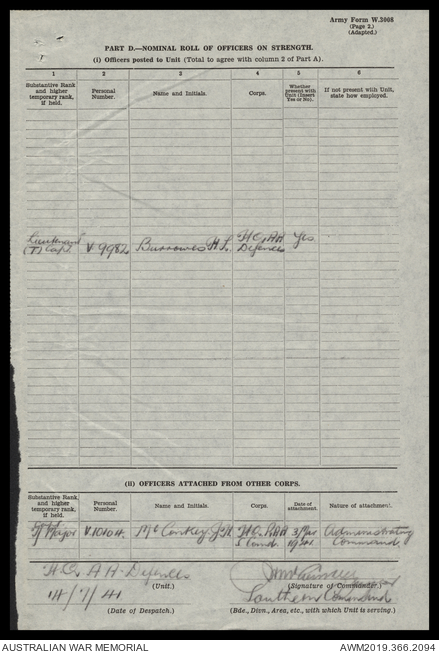 Army Form W.3008
(Page 2.)
(Adapted.)
PART D.—NOMINAL ROLL OF OFFICERS ON STRENGTH.
(i) Officers posted to Unit (Total to agree with column 2 of Part A).
1 2 3 4 5 6
Substantive Rank and higher temporary rank, if held. Personal Number. Name and Initials. Corps. Whether present with Unit (Insert Yes or No). If not present with Unit, state how employed.
Lieutenant H.Q. AA Yes
(T) Capt V 9982 Burrowes H. L. Defences
(ii) OFFICERS ATTACHED FROM OTHER CORPS.
Substantive Rank, and higher temporary rank, if held. Personal Number. Name and Initials. Corps. Date of attachment. Nature of attachment.
T/Major V.10104. McConkey. H.Q. Administrating
S Comd. Command.
H.Q. A A Defences
(Unit.) (Signature of Commander.)
14/7/41 Southern Command
(Date of Despatch.) (Bde., Divn., Area, etc., with which Unit is serving.)
AUSTRALIAN WAR MEMORIAL AWM2019.366.2094